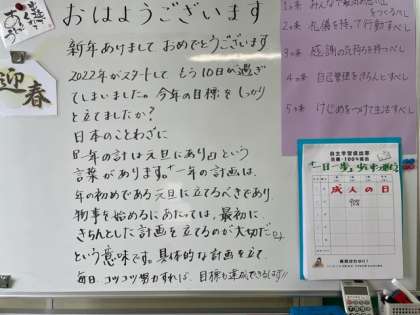 おはようございます
新年あけまして おめでとうございます
2022年がスタートして もう10日が過ぎ
てしまいました。今年の目標を しっかり
と立てましたか?
日本のことわざに
『一年の計は元旦にあり』という
言葉があります。“一年の計画は、
年の初めである元旦に立てるべきであり、
物事を始めるにあたっては、最初に
きちんとした計画を立てるのが大切だ”
という意味です。具体的な計画を立て、
毎日、コツコツ努力すれば、目標も達成できるはず!!
迎春
1の米
をつくるべし
2の米 礼儀を持って行動すべし
3の米 感謝の気持ちを持つべし
4の米 自己管理をきちんとすべし
5の米 けじめをつけて生活すべし
自主学習提出率
目標・100%提出
成人の日